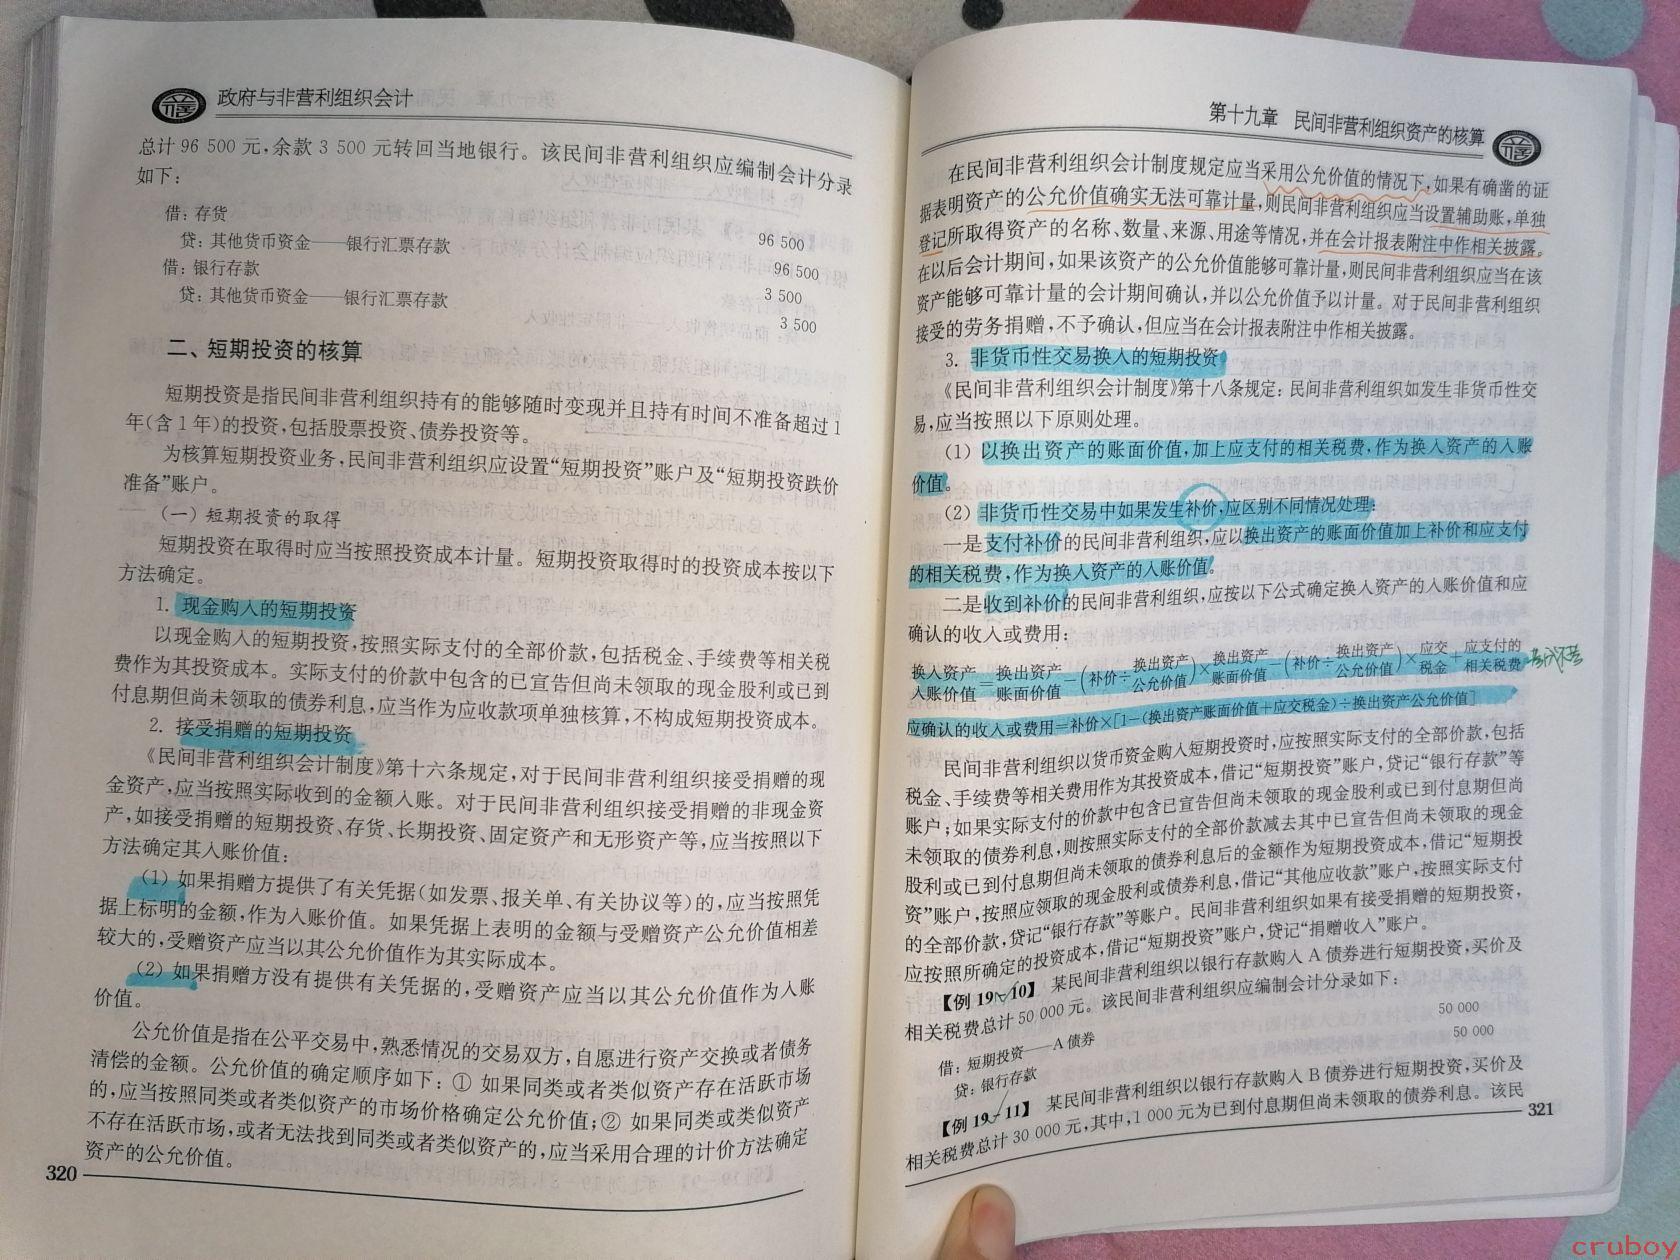 政府与非营利组织会计
总计 96 500 元,余款 3 500 元转回当地银行。该民间非营利组织应编制会计分录
如下:
借:存货 96 500
贷:其他货币资金——银行汇票存款 96 500
借:银行存款 3 500
贷:其他货币资金——银行汇票存款 3 500
二、短期投资的核算
短期投资是指民间非营利组织持有的能够随时变现并且持有时间不准备超过 1
年(含 1 年)的投资,包括股票投资、债券投资等。
为核算短期投资业务,民间非营利组织应设置“短期投资”账户及“短期投资跌价
准备”账户。
(一) 短期投资的取得
短期投资在取得时应当按照投资成本计量。短期投资取得时的投资成本按以下
方法确定。
1. 现金购入的短期投资
以现金购入的短期投资,按照实际支付的全部价款,包括税金、手续费等相关税
费作为其投资成本。实际支付的价款中包含的已宣告但尚未领取的现金股利或已到
付息期但尚未领取的债券利息,应当作为应收款项单独核算,不构成短期投资成本。
2. 接受捐赠的短期投资
《民间非营利组织会计制度》第十六条规定,对于民间非营利组织接受捐赠的现
金资产,应当按照实际收到的金额入账。对于民间非营利组织接受捐赠的非现金资
产,如接受捐赠的短期投资、存货、长期投资、固定资产和无形资产等,应当按照以下
方法确定其入账价值:
(1) 如果捐赠方提供了有关凭据(如发票、报关单、有关协议等)的,应当按照凭
据上标明的金额,作为入账价值。如果凭据上表明的金额与受赠资产公允价值相差
较大的,受赠资产应当以其公允价值作为其实际成本。
(2) 如果捐赠方没有提供有关凭据的,受赠资产应当以其公允价值作为入账
价值。
公允价值是指在公平交易中,熟悉情况的交易双方,自愿进行资产交换或者债务
清偿的金额。公允价值的确定顺序如下:① 如果同类或者类似资产存在活跃市场
的,应当按照同类或者类似资产的市场价格确定公允价值;② 如果同类或类似资产
不存在活跃市场,或者无法找到同类或者类似资产的,应当采用合理的计价方法确定
资产的公允价值。
320
第十九章 民间非营利组织资产的核算
在民间非营利组织会计制度规定应当采用公允价值的情况下,如果有确凿的证
据表明资产的公允价值确实无法可靠计量,则民间非营利组织应当设置辅助账,单独
登记所取得资产的名称、数量、来源、用途等情况,并在会计报表附注中作相关披露。
在以后会计期间,如果该资产的公允价值能够可靠计量,则民间非营利组织应当在该
资产能够可靠计量的会计期间确认,并以公允价值予以计量。对于民间非营利组织
接受的劳务捐赠,不予确认,但应当在会计报表附注中作相关披露。
3. 非货币性交易换入的短期投资
《民间非营利组织会计制度》第十八条规定:民间非营利组织如发生非货币性交
易,应当按照以下原则处理。
(1) 以换出资产的账面价值,加上应支付的相关税费,作为换入资产的入账
价值。
(2) 非货币性交易中如果发生补价,应区别不同情况处理:
一是支付补价的民间非营利组织,应以换出资产的账面价值加上补价和应支付
的相关税费,作为换入资产的入账价值。
二是收到补价的民间非营利组织,应按以下公式确定换入资产的入账价值和应
确认的收入或费用:
换入资产入账价值=换出资产账面价值-(补价÷换出资产公允价值)×换出资产账面价值-(补价÷换出资产公允价值)×应交税金+应支付的相关税费
应确认的收入或费用=补价×[1-(换出资产账面价值+应交税金)÷换出资产公允价值]
民间非营利组织以货币资金购入短期投资时,应按照实际支付的全部价款,包括
税金、手续费等相关费用作为其投资成本,借记“短期投资”账户,贷记“银行存款”等
账户;如果实际支付的价款中包含已宣告但尚未领取的现金股利或已到付息期但尚
未领取的债券利息,则按照实际支付的全部价款减去其中已宣告但尚未领取的现金
股利或已到付息期但尚未领取的债券利息后的金额作为短期投资成本,借记“短期投
资”账户,按照应领取的现金股利或债券利息,借记“其他应收款”账户,按照实际支付
的全部价款,贷记“银行存款”等账户。民间非营利组织如果有接受捐赠的短期投资,
应按照所确定的投资成本,借记“短期投资”账户,贷记“捐赠收入”账户。
【例 19-10】 某民间非营利组织以银行存款购入 A 债券进行短期投资,买价及
相关税费总计 50 000 元。该民间非营利组织应编制会计分录如下:
借:短期投资——A 债券 50 000
贷:银行存款 50 000
【例 19-11】 某民间非营利组织以银行存款购入 B 债券进行短期投资,买价及
相关税费总计 30 000 元,其中,1 000 元为已到付息期但尚未领取的债券利息。该民
321
cruboy